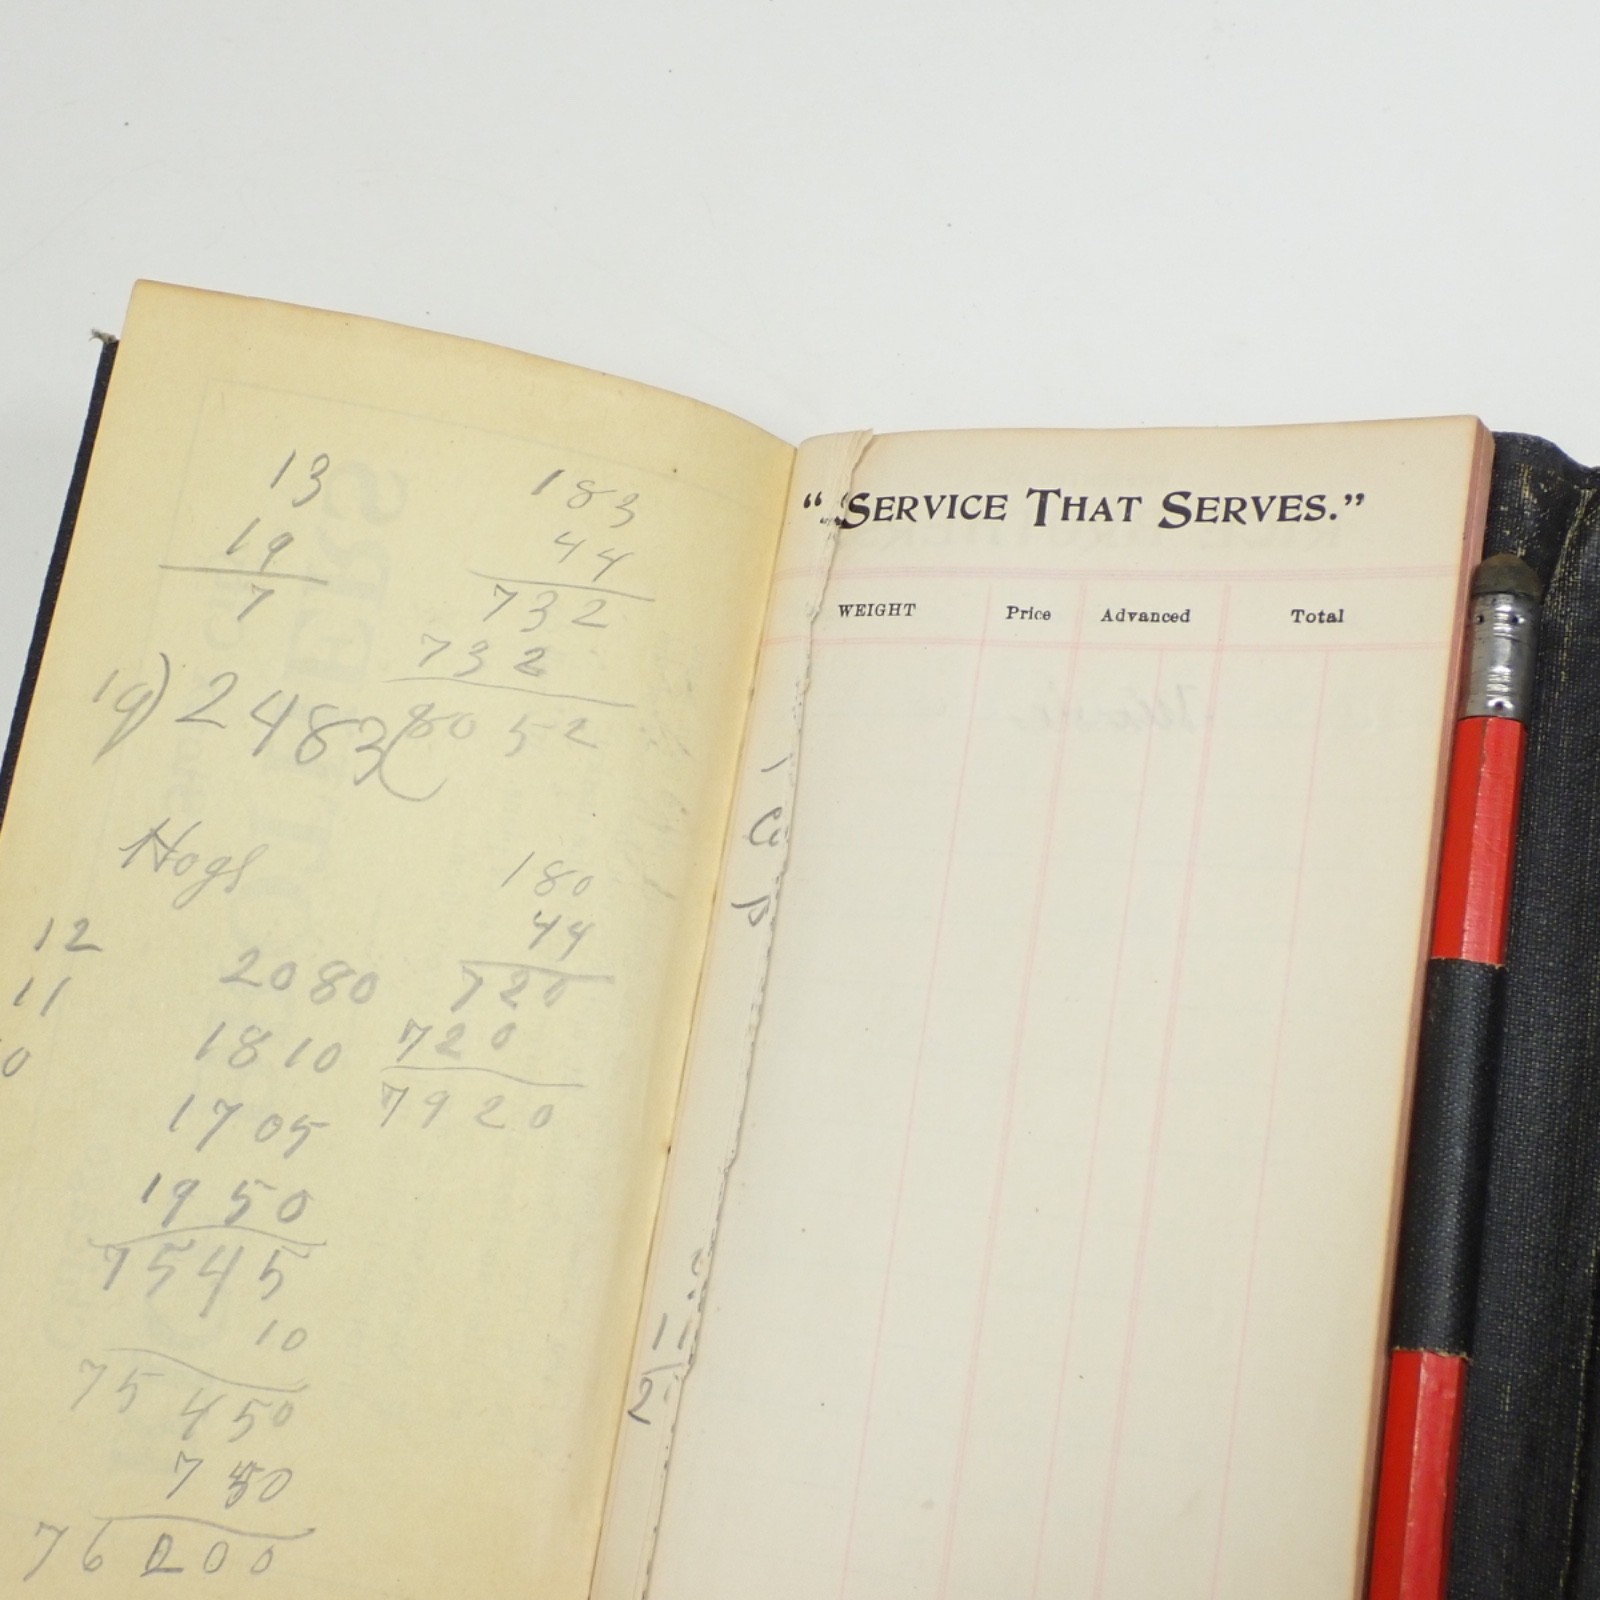 13
19
7
19) 2483(
183
44
732
732
8052
Hogs
12
11
0
2080
1810
1705
1950
7545
10
75450
750
76200
180
44
720
720
7920
"SERVICE THAT SERVES."
WEIGHT Price Advanced Total